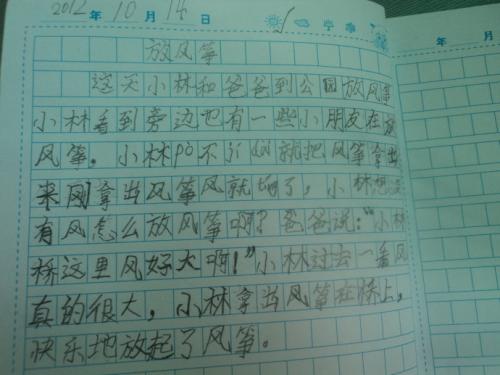 2012年10月14日
放风筝
这天小林和爸爸到公园放风筝
小林看到旁边也有一些小朋友在放
风筝。小林pò不jí dài就把风筝拿出
来刚拿出风筝风就停了，小林想没
有风怎么放风筝啊？爸爸说：“小林
桥这里风好大啊！”小林过去一看风
真的很大，小林拿出风筝在桥上，
快乐地放起了风筝。
年 月